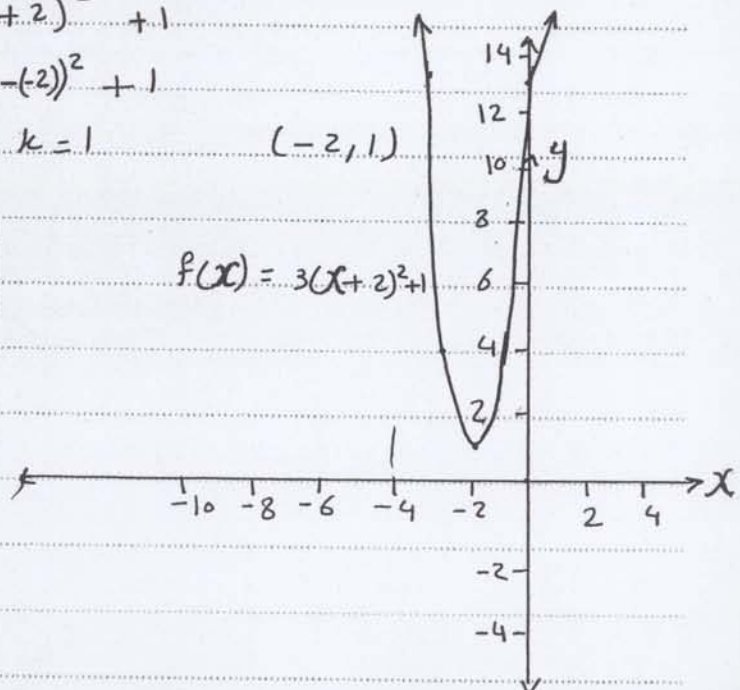 +2) + 1
-(-2))² + 1
k = 1 (-2, 1)
f(x) = 3(x+2)²+1
14
12
10 y
8
6
4
2
-10 -8 -6 -4 -2 2 4 x
-2
-4